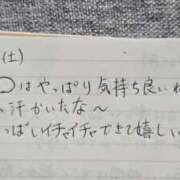 (土)
〇はやっぱり気持ち良いね
〜汗かいたな〜
っぱいイチャイチャできて嬉しい